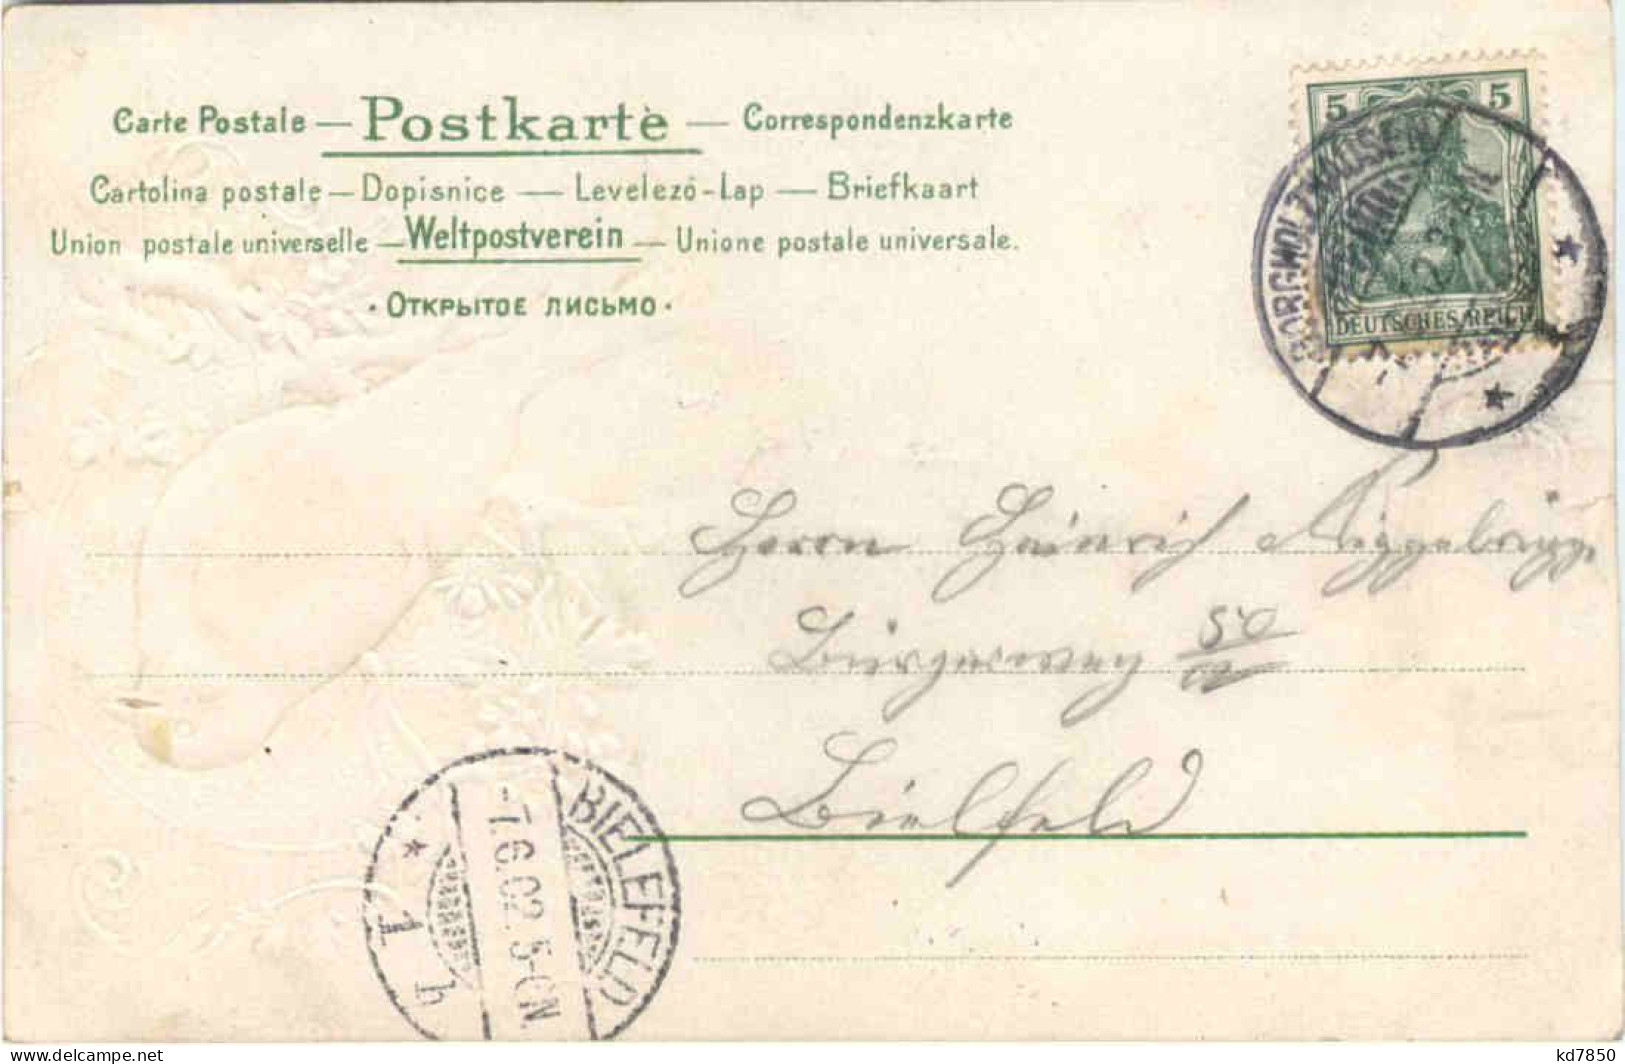 Carte Postale — Postkarte — Correspondenzkarte
Cartolina postale — Dopisnice — Levelezó-Lap — Briefkaart
Union postale universelle — Weltpostverein — Unione postale universale.
· Открытое письмо ·
5 5
DEUTSCHES REICH
BORGHOLZHAUSEN
Herrn Heinrich Niggebrügge
Bürgerweg 50
Bielfeld
BIELEFELD
-7.6.02. 5-6N.
* 1 h
www.delcampe.net
kd7850